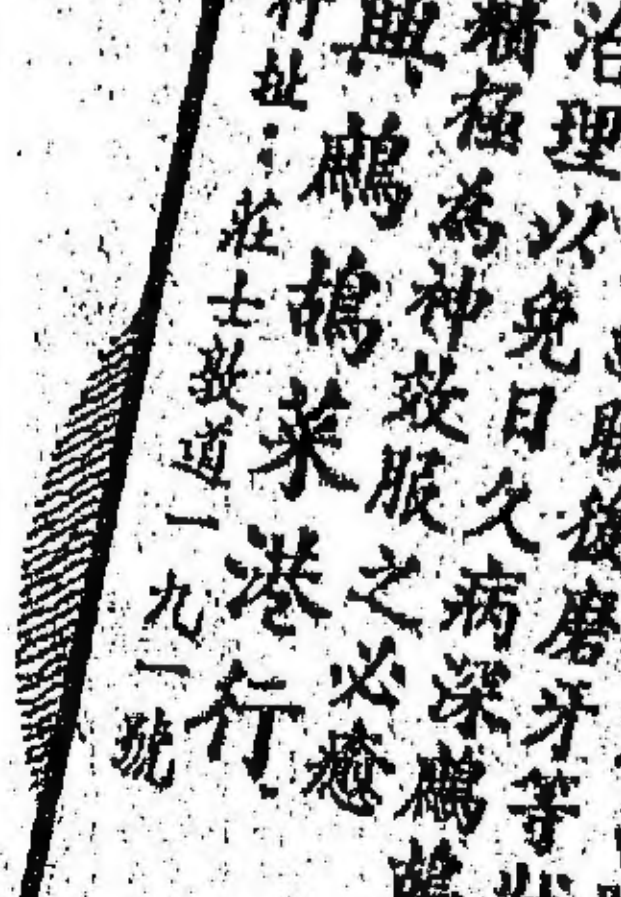 後磨牙等
治理以免日久病深鷓鴣
極為神效服之必癒
興鷓鴣菜港行
行址：莊士敦道一九一號